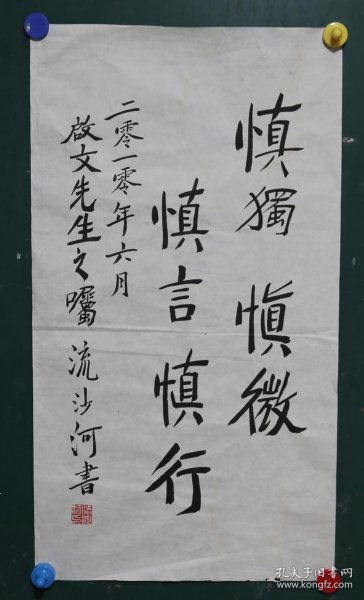 慎獨 慎微
慎言慎行
二零一零年六月
啟文先生之囑 流沙河書
孔夫子旧书网
www.kongfz.com